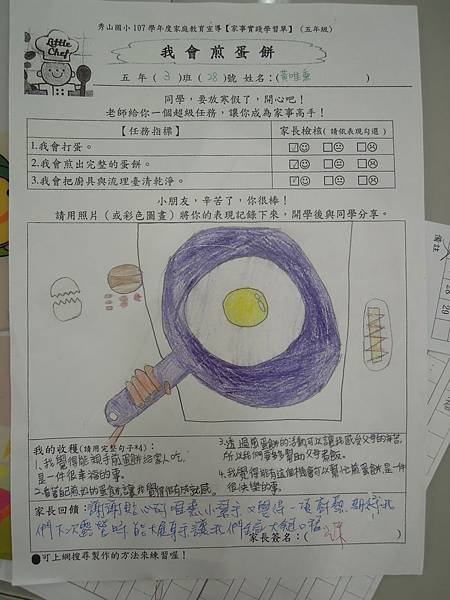 Little Chef
秀山國小107學年度家庭教育宣導【家事實踐學習單】(五年級)
我會煎蛋餅
五年(3)班(28)號 姓名:(黃唯 )
同學,要放寒假了,開心吧!
老師給你一個超級任務,讓你成為家事高手!
【任務指標】 家長檢核(請依表現勾選)
1.我會打蛋。 ☑☺ □😐 □☹
2.我會煎出完整的蛋餅。 ☑☺ □😐 □☹
3.我會把廚具與流理臺清乾淨。 ☑☺ □😐 □☹
小朋友,辛苦了,你很棒!
請用照片(或彩色圖畫)將你的表現記錄下來,開學後與同學分享。
我的收穫(請用完整句子喔):
1.我覺得能親手煎蛋餅給家人吃,
是一件很幸福的事。
2.看著自己煎出的蛋餅,讓我覺得很有成就感。
3.透過煎蛋餅的活動可以讓我感受父母的辛苦,
所以我們要多幫助父母煮飯。
4.我覺得能有這個機會可以幫忙煎蛋餅,是一件
很快樂的事。
家長回饋:謝謝貼心的 小 又 得一項 期待我
們下次露營時能大 身手讓我們 大 口福
家長簽名:( )
●可上網搜尋製作的方法來練習喔!
備註
28
29